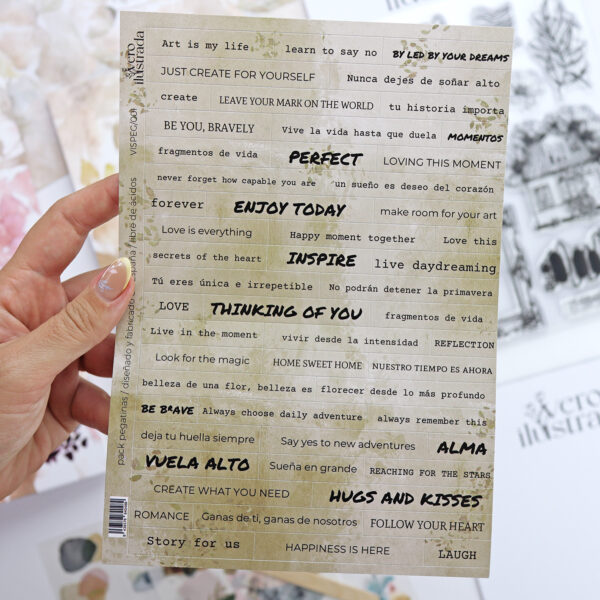 cro ilustrada
Art is my life learn to say no BY LED BY YOUR DREAMS
JUST CREATE FOR YOURSELF Nunca dejes de soñar alto
create LEAVE YOUR MARK ON THE WORLD tu historia importa
BE YOU, BRAVELY Vive la vida hasta que duela MOMENTOS
fragmentos de vida PERFECT LOVING THIS MOMENT
never forget how capable you are un sueño es deseo del corazón
forever ENJOY TODAY make room for your art
Love is everything Happy moment together Love this
secrets of the heart INSPIRE live daydreaming
Tú eres única e irrepetible No podrán detener la primavera
LOVE THINKING OF YOU fragmentos de vida
Live in the moment vivir desde la intensidad REFLECTION
Look for the magic HOME SWEET HOME NUESTRO TIEMPO ES AHORA
belleza de una flor, belleza es florecer desde lo más profundo
BE BRAVE Always choose daily adventure always remember this
deja tu huella siempre Say yes to new adventures ALMA
VUELA ALTO Sueña en grande REACHING FOR THE STARS
CREATE WHAT YOU NEED HUGS AND KISSES
ROMANCE Ganas de ti, ganas de nosotros FOLLOW YOUR HEART
Story for us HAPPINESS IS HERE LAUGH
pack pegatinas / diseñado y fabricado
/ libre de ácidos
cro ilustrada